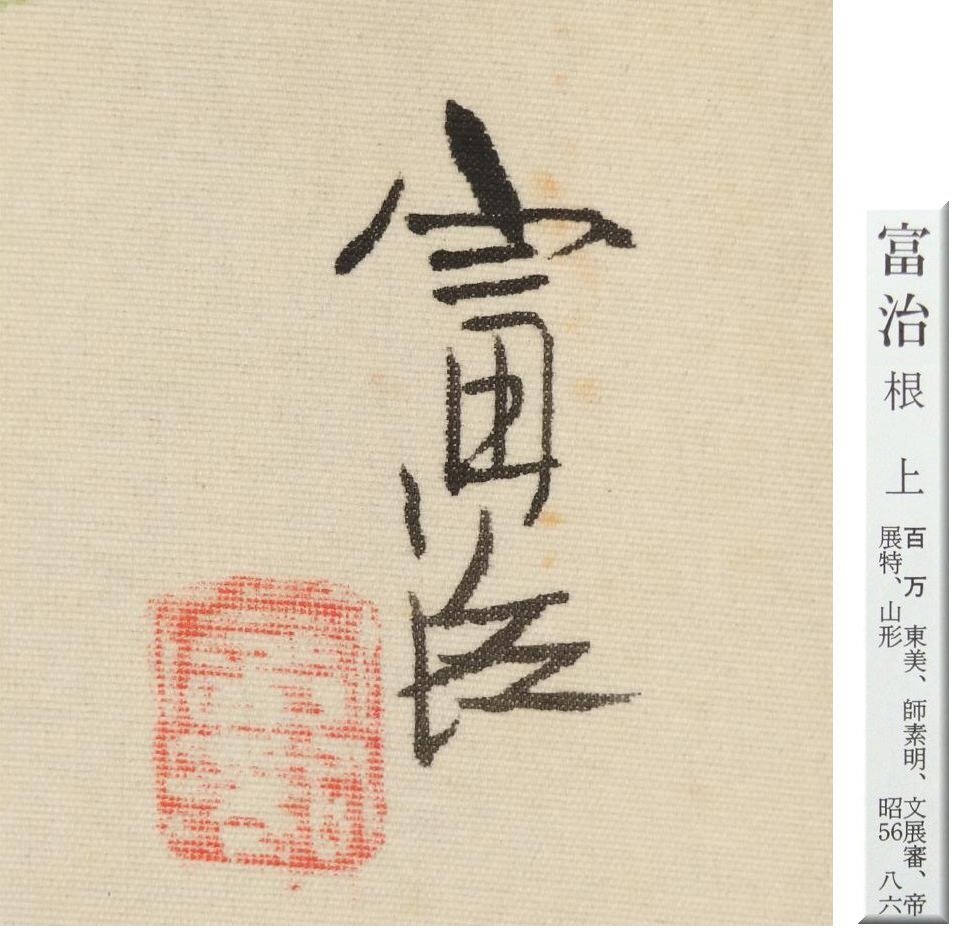 富治
富治
根上
百万 東美、師素明、文展審、帝
展特、山形 昭56 八六